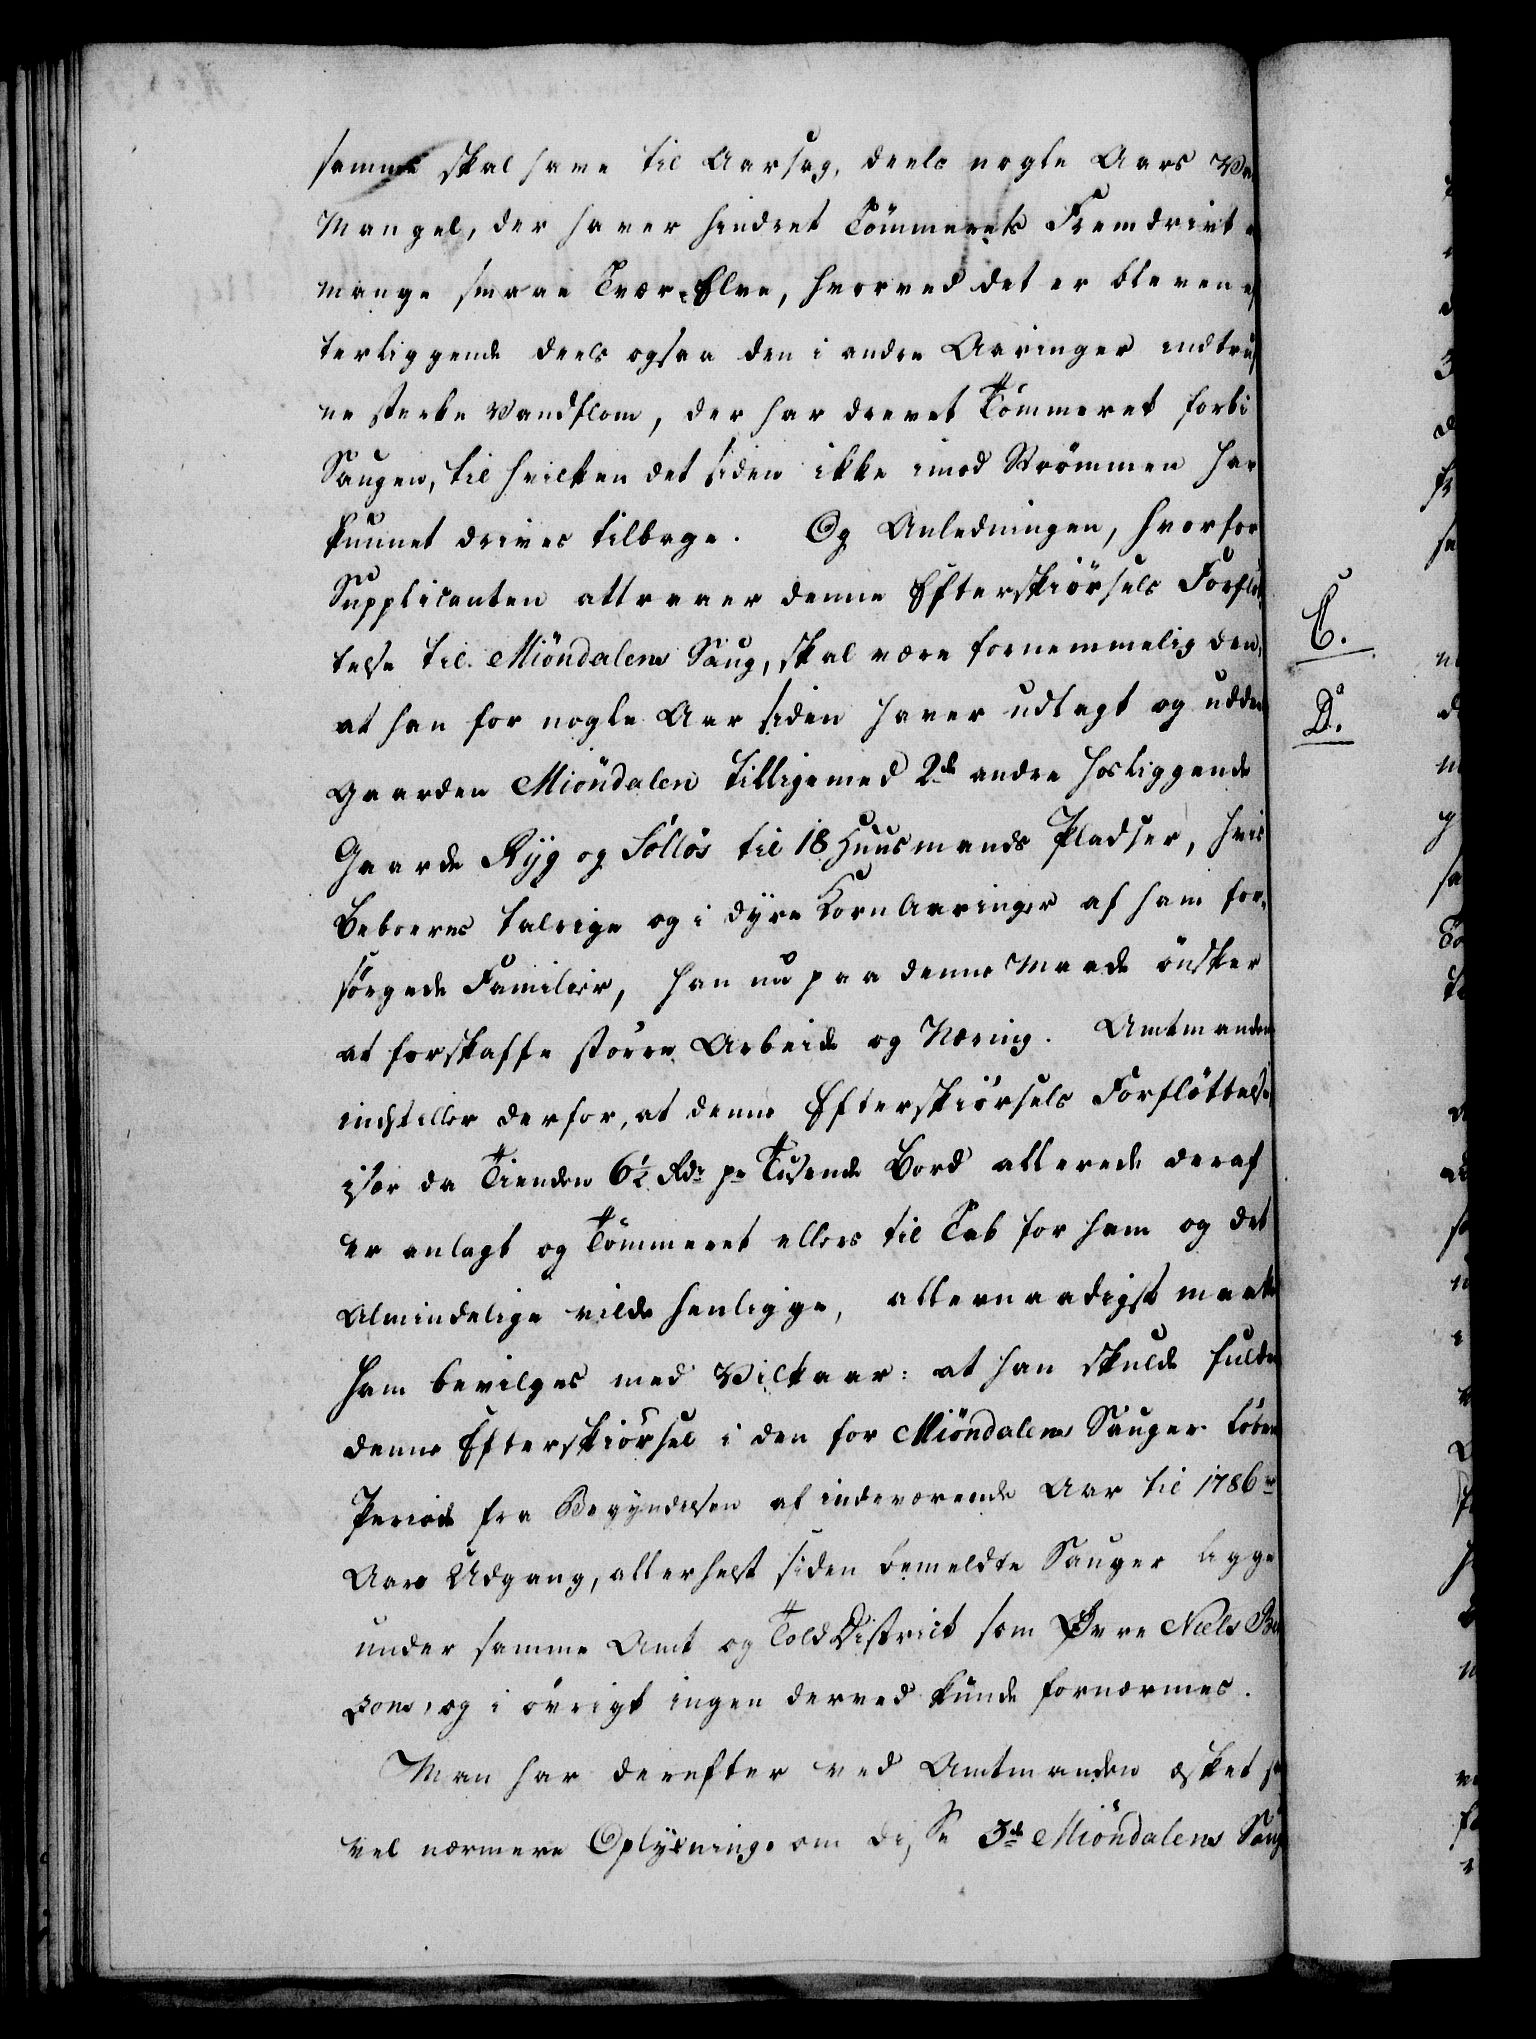 samme skal have til Aarsag, deels nogle Aars
Mangel, der haver hindret Tömmerets Fremdrivt
mange smaae Tvær-Elve, hvorved det er bleven
terliggende deels ogsaa den i andre Aaringer indtruf
ne sterke Vandflom, der har drevet Tömmeret forbi
Saugen, til hvilken det siden ikke imod Strömmen har
kunnet drives tilbage. Og Anledningen, hvorfor
Supplicanten attraaer denne Efterskiörsels Forflöt
telse til Miöndalens Saug, skal være fornemmelig den,
at han for nogle Aar siden haver udlagt og
Gaarden Miöndalen tilligemed 2de andre hosliggende
Gaarde Ryg og Söllös til 18 Huusmands Pladser, hvis
Beboeres talrige og i dyre Korn Aaringer af ham for,
sörgede Familier, han nu paa denne Maade önsker
at forskaffe större Arbeide og Næring. Amtmanden
indstiller derfor, at denne Efterskiörsels Forflöttelse
især da Tienden 6½ Rdr pr Tusende Bord allerede deraf
er anlagt og Tömmeret ellers til Tab for ham og det
Almindelige vilde henligge, allernaadigst maatte
ham bevilges med Vilkaar: at han skulde
denne Efterskiörsel i den for Miöndalens Sauger
Periode fra Begyndelsen af indeværende Aar til 1786de
Aars Udgang, allerhelst siden bemeldte Sauger ligge
under samme Amt og Told District som Övre Niels
og i övrigt ingen derved kunde fornærmes.
Man har derefter ved Amtmanden æsket
vel nærmere Oplysning om disse 3de Miöndalens Saug
C.
D.